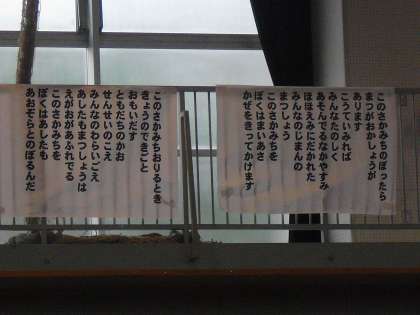 このさかみちのぼったら
まつがおかしょうが
あります
こうていみれば
みんなたのしく
あそんでるなかやすみ
ほほえみにだかれた
みんなのじまんの
まつしょう
このさかみちを
ぼくはまいあさ
かぜをきってかけます
このさかみちおりるとき
きょうのできごと
おもいだす
ともだちのかお
せんせいのこえ
みんなのわらいごえ
あしたもまつしょうは
えがおがあふれてる
このさかみちを
ぼくはあしたも
あおぞらとのぼるんだ